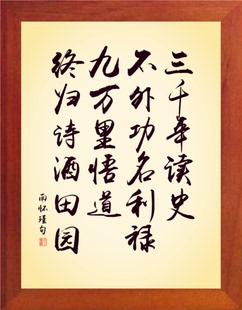 三千年读史
不外功名利禄
九万里悟道
终归诗酒田园
南怀瑾句